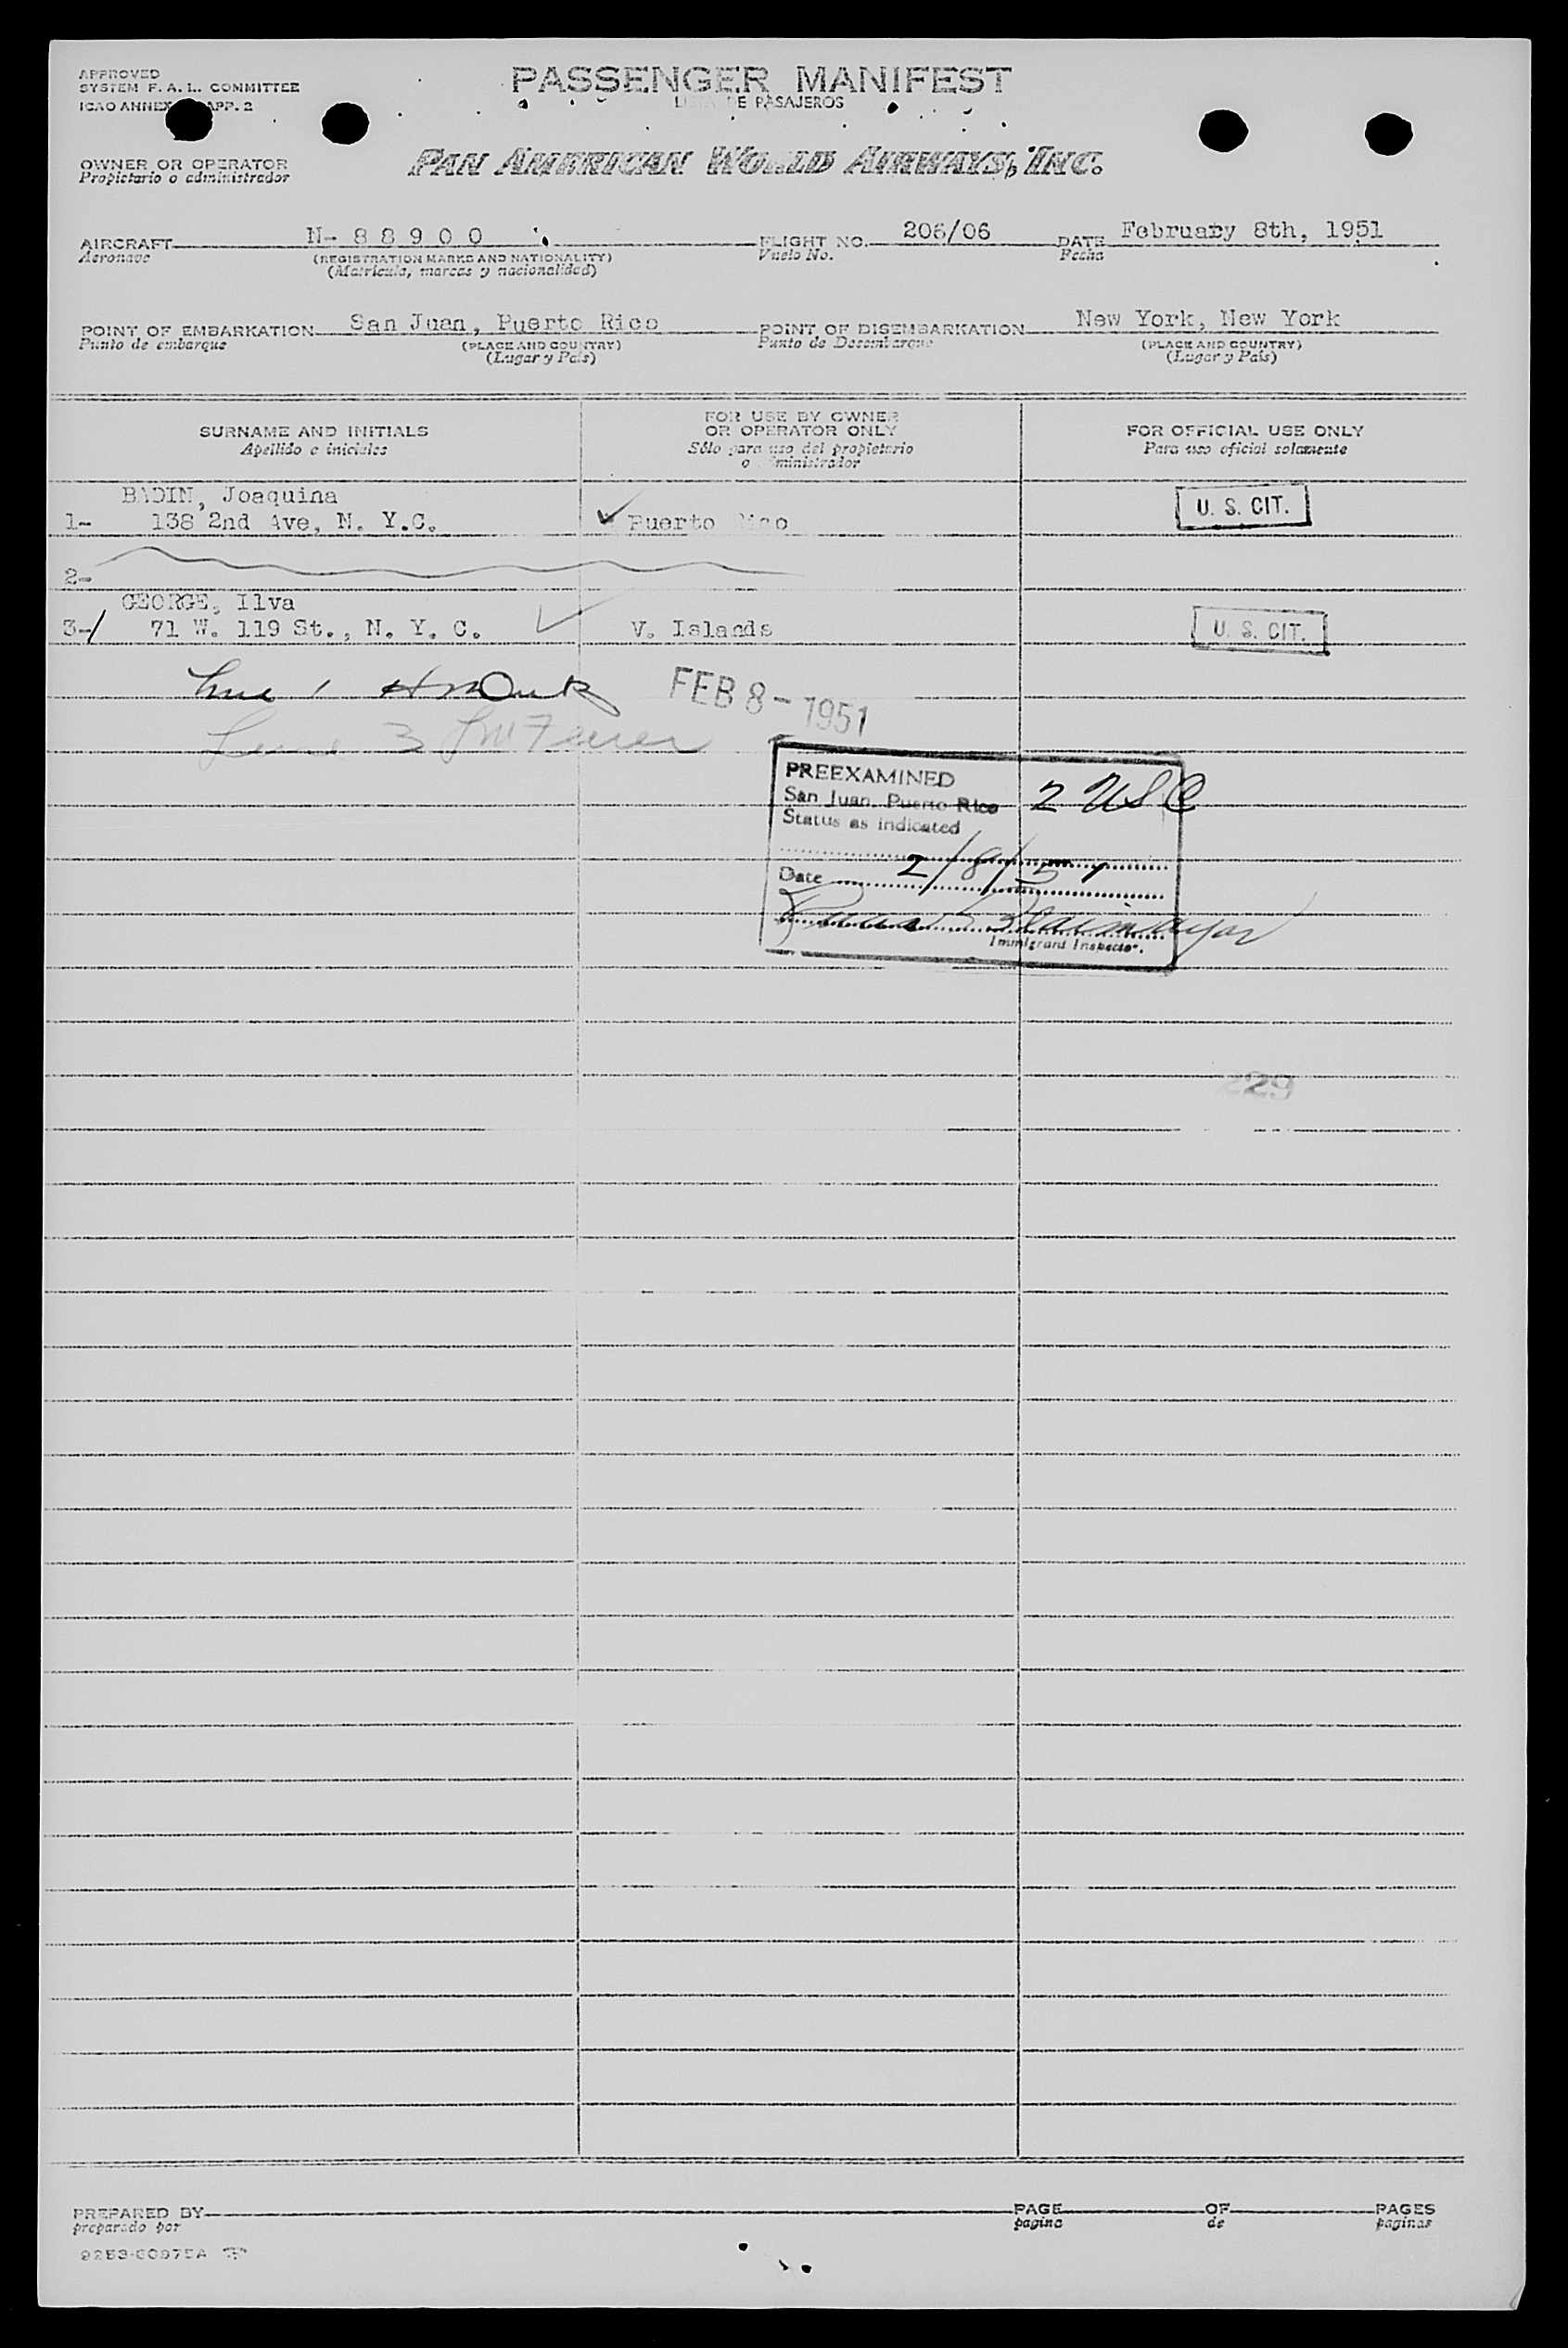 APPROVED
SYSTEM F. A. L. COMMITTEE
ICAO ANNEX APP. 2
PASSENGER MANIFEST
LISTA DE PASAJEROS
OWNER OR OPERATOR
Propietario o administrador
PAN AMERICAN WORLD AIRWAYS, INC.
AIRCRAFT N- 8 8 9 0 0 FLIGHT NO. 206/06 DATE February 8th, 1951
Aeronave (REGISTRATION MARKS AND NATIONALITY) Vuelo No. Fecha
(Matrícula, marcas y nacionalidad)
POINT OF EMBARKATION San Juan, Puerto Rico POINT OF DISEMBARKATION New York, New York
Punto de embarque (PLACE AND COUNTRY) Punto de Desembarque (PLACE AND COUNTRY)
(Lugar y País) (Lugar y País)
SURNAME AND INITIALS
Apellido e iniciales
FOR USE BY OWNER
OR OPERATOR ONLY
Sólo para uso del propietario
o administrador
FOR OFFICIAL USE ONLY
Para uso oficial solamente
BADIN, Joaquina
1- 138 2nd Ave, N. Y.C. Puerto Rico U. S. CIT.
2-
GEORGE, Ilva
3- 71 W. 119 St., N. Y. C. V. Islands U. S. CIT.
Line 1
FEB 8 - 1951
Line 3
PREEXAMINED
San Juan, Puerto Rico 2 USC
Status as indicated
Date 2/8/51
Immigrant Inspector.
229
PREPARED BY PAGE OF PAGES
preparado por pagina de paginas